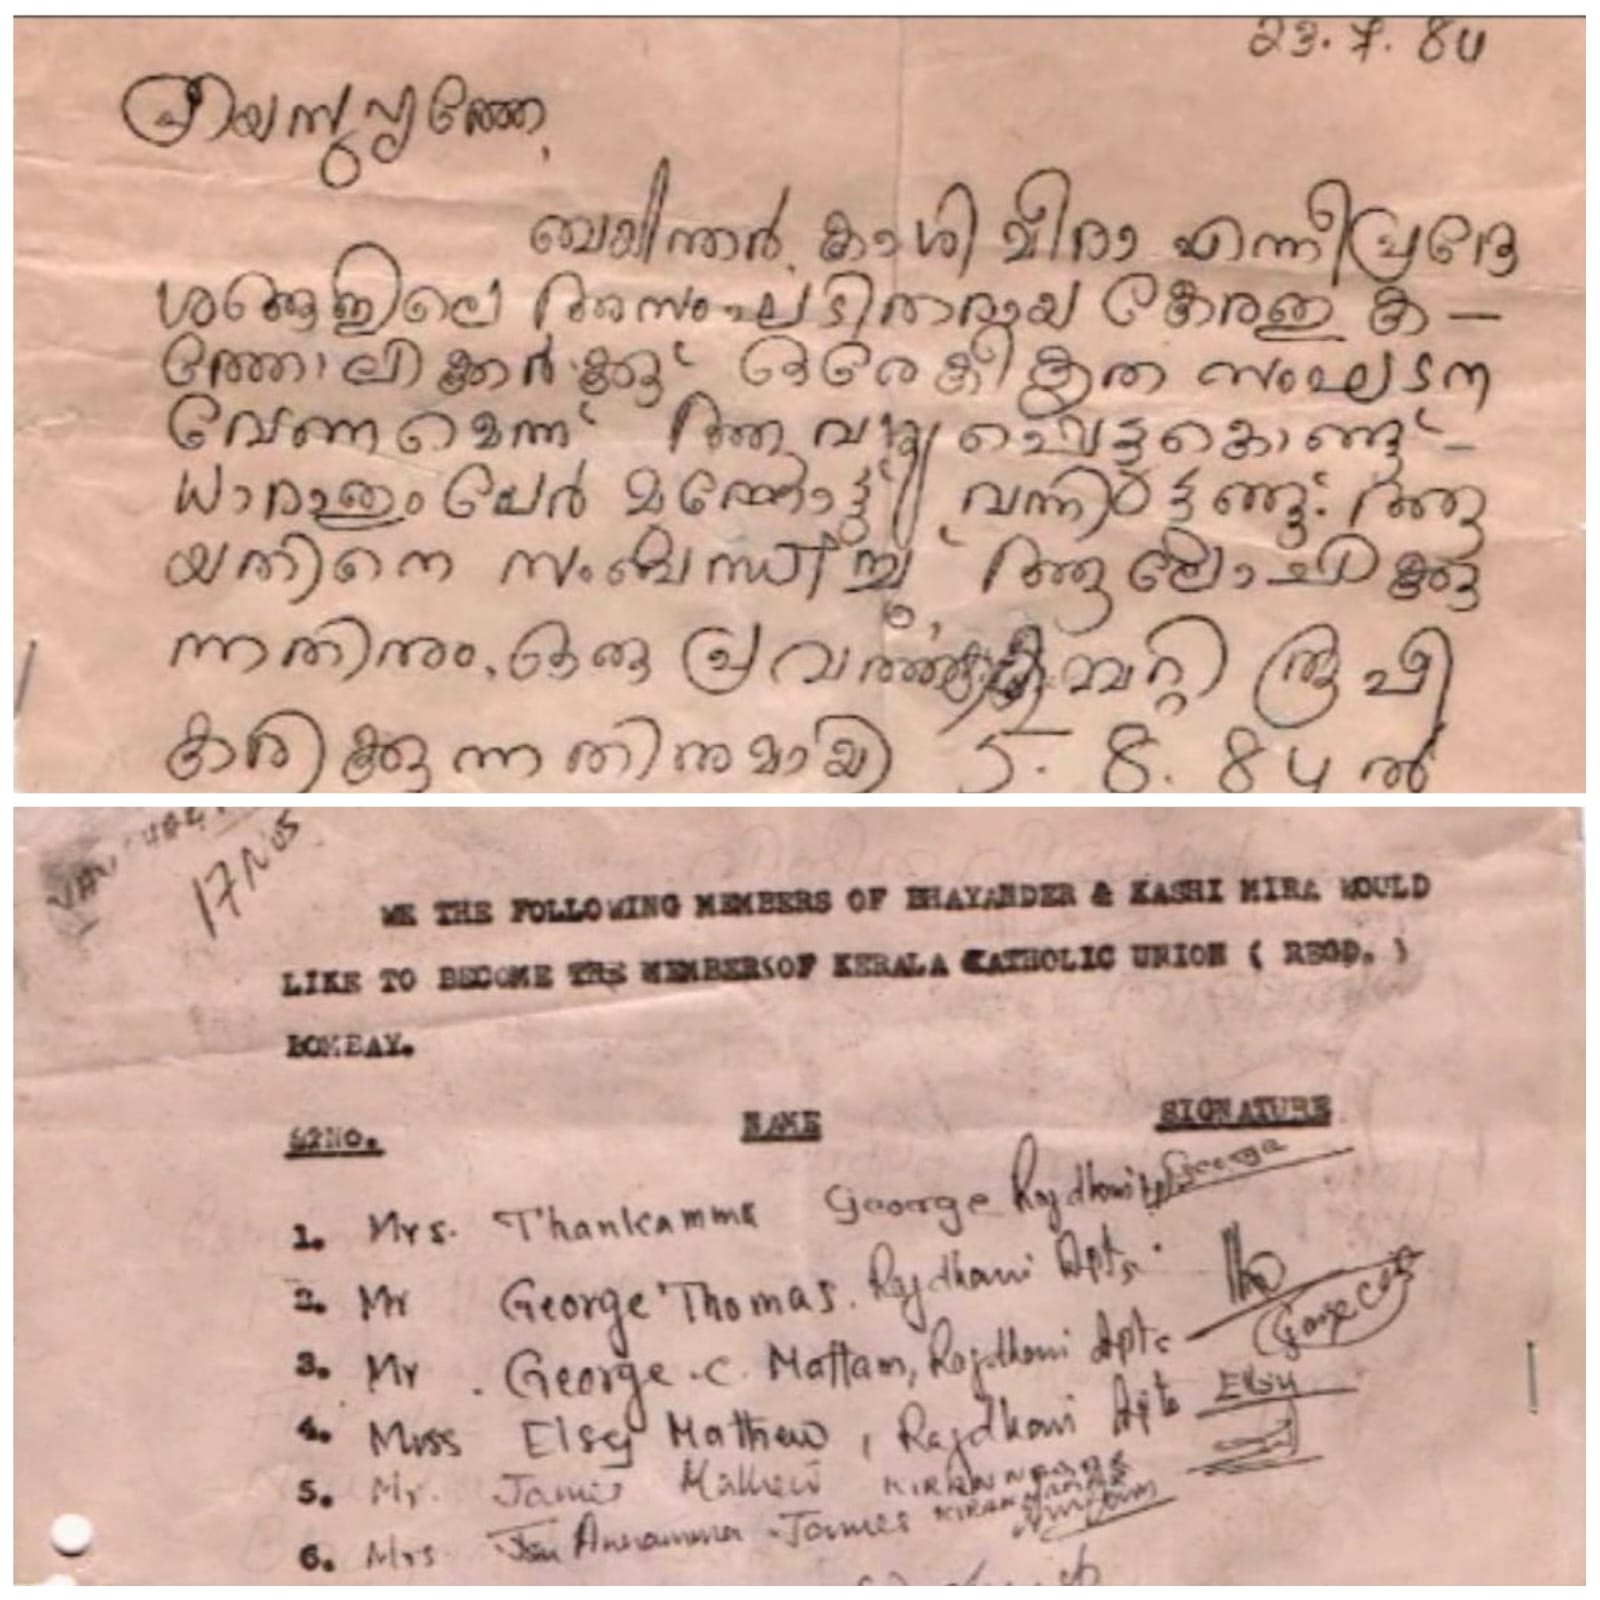 23.7.84
പ്രീയസുഹൃത്തേ,
ബയിന്തർ, കാശി മീരാ എന്നീപ്രദേ
ശങ്ങളിലെ അസംഘടിതരായ കേരള ക-
ത്തോലിക്കർക്കു് ഒരേകീകൃത സംഘടന
വേണമെന്നു് ആവശ്യപ്പെട്ടുകൊണ്ടു്-
ധാരാളം പേർ മുന്നോട്ടു് വന്നിട്ടുണ്ടു്. ആ
യതിനെ സംബന്ധിച്ചു്, ആലോചിക്കു
ന്നതിനും, ഒരു പ്രവർത്തക കമ്മറ്റി രൂപീ
കരിക്കുന്നതിനുമായി 5.8.84 ൽ
17 Nos.
WE THE FOLLOWING MEMBERS OF BHAYANDER & KASHI MIRA WOULD
LIKE TO BECOME THE MEMBERSOF KERALA CATHOLIC UNION ( REGD. )
BOMBAY.
SRNO. NAME SIGNATURE
1. Mrs. Thankamma George Rajdhani George
2. Mr George Thomas. Rajdhani Apts.
3. Mr. George.C. Mattam, Rajdhani Apts George
4. Miss Elsy Mathew, Rajdhani Apts Elsy
5. Mr. James Mathew KIRAN NAGAR
6. Mrs Annamma James KIRAN NAGAR